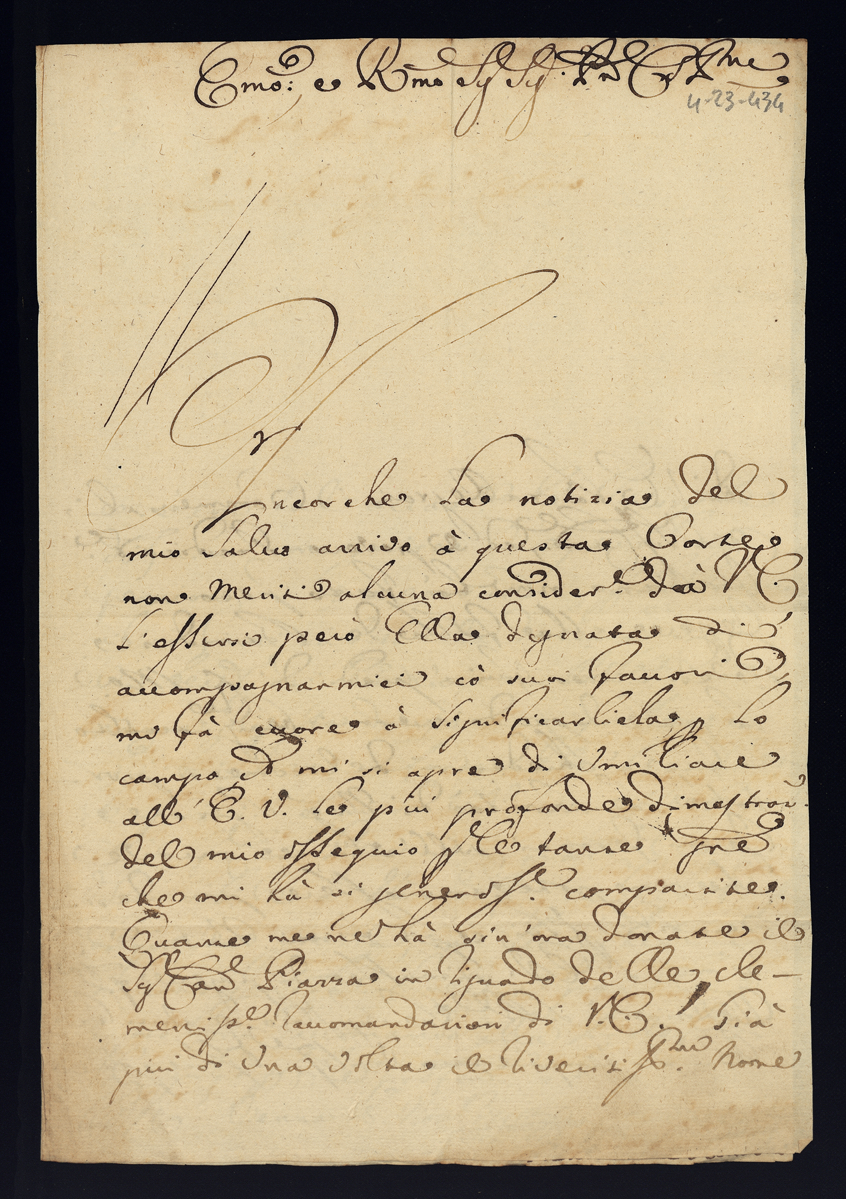 Emo: e Rmo Sig Sig. Pne
4-23-434
Ancorche la notizia del
mio salvo arrivo à questa Corte
non meriti alcuna consider.e dà V. E.
l'essersi però Ella degnata di
accompagnarmici cò suoi favori,
mi fà cuore à significarliela, p lo
campo che mi si apre di umiliare
all' E. V. le più profonde dimostraz.
del mio ossequio p le tante gre
che mi hà si generosse. compartite.
Quante me ne hà sin'ora donate il
Sigr Card Piazza in riguardo delle cle-
mentisse. raccomandazioni di V. E., già
più di una volta il riveritisse. Nome